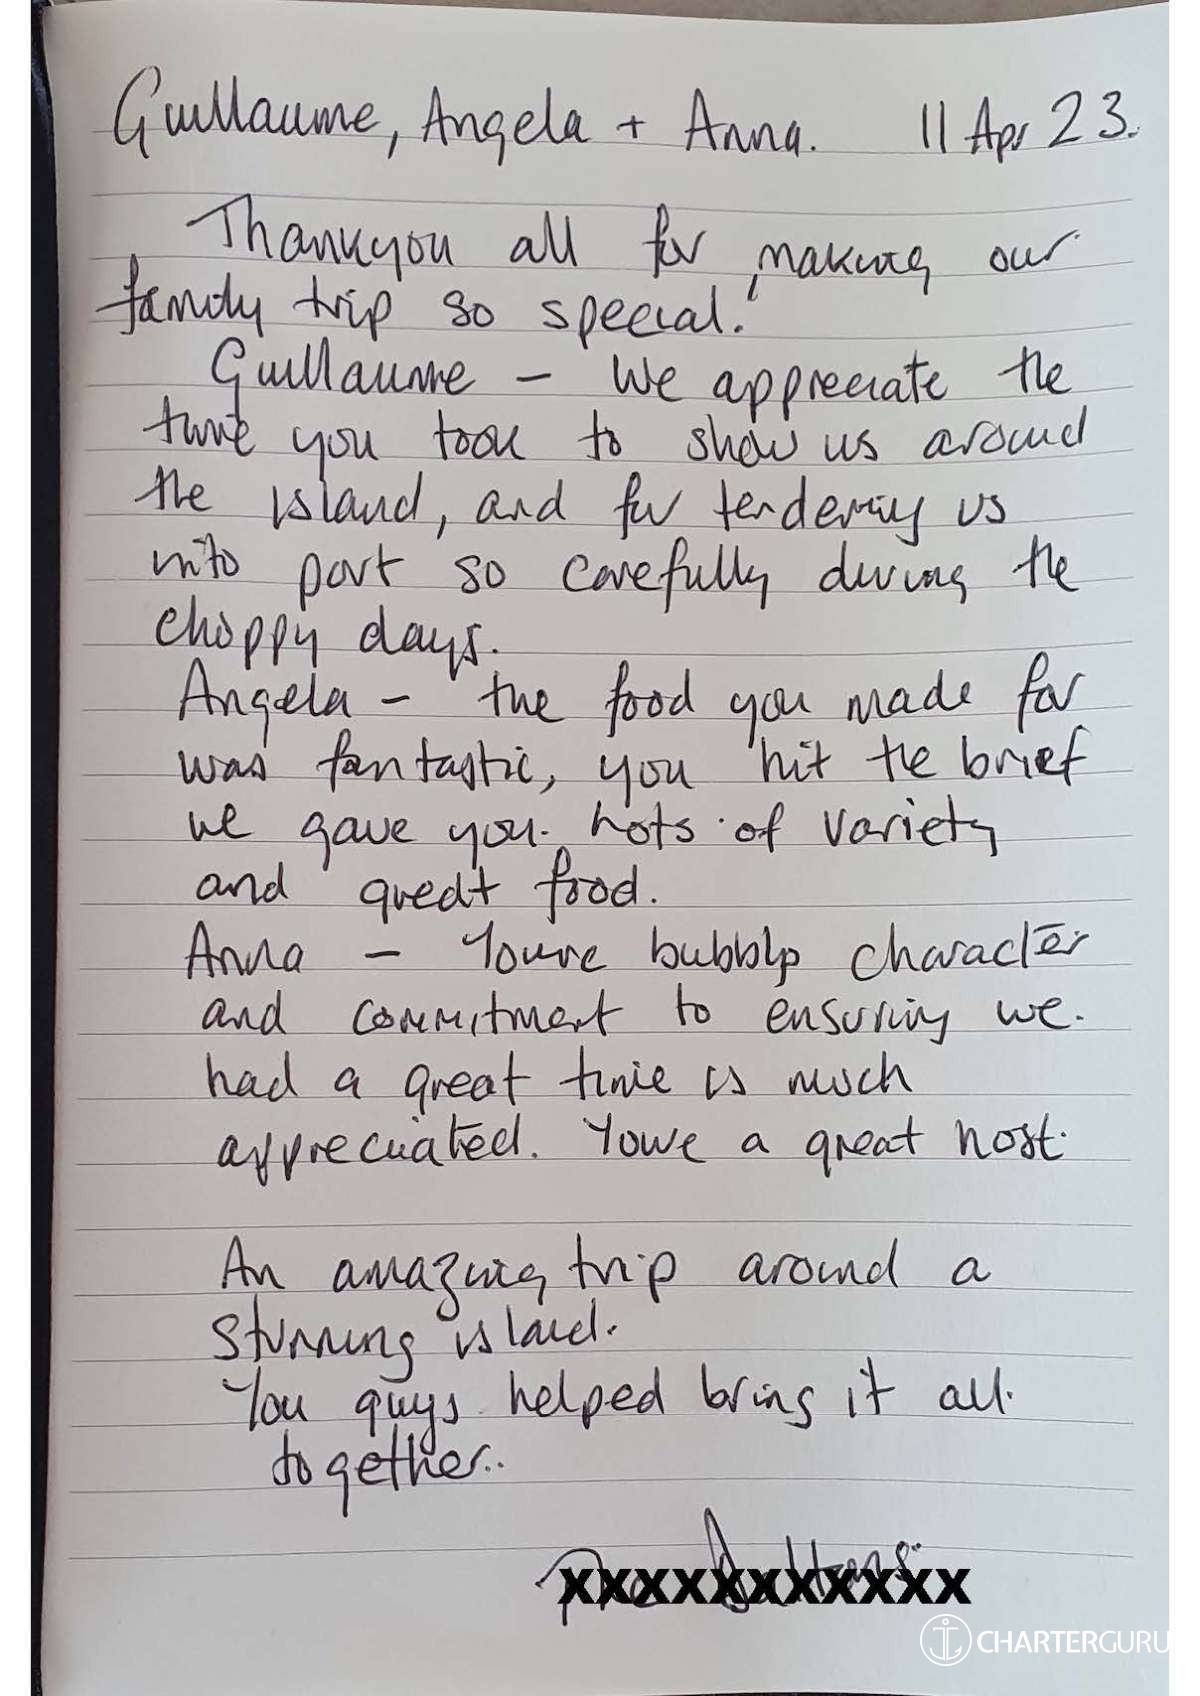 Guillaume, Angela + Anna. 11 Apr 23.
Thankyou all for making our
family trip so special!
Guillaume - We appreciate the
time you took to show us around
the island, and for tendering us
into port so carefully during the
choppy days.
Angela - the food you made for
was fantastic, you hit the brief
we gave you. hots of variety
and great food.
Anna - Youre bubbly character
and commitment to ensuring we.
had a great time is much
appreciated. Youre a great host.
An amazing trip around a
stunning island.
You guys helped bring it all.
together..
xxxxxxxxxxxx
CHARTERGURU